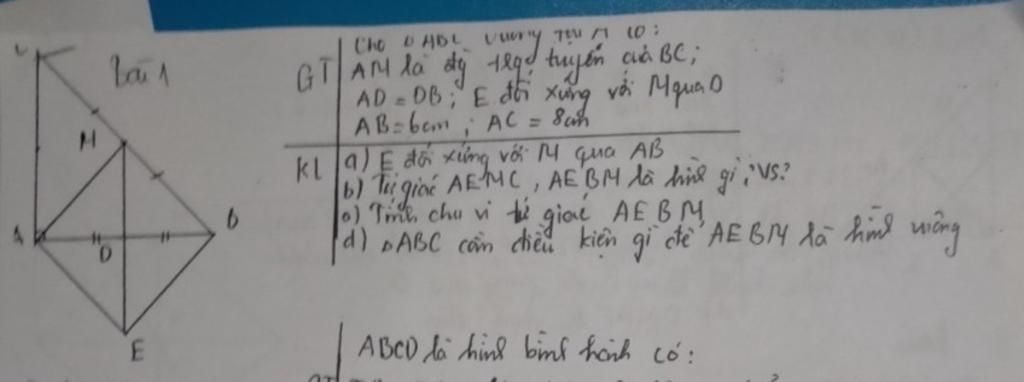 Bài 1
C
M
A
B
D
E
GT
Cho △ABC vuông tại A có:
AM là đg trg tuyến của BC;
AD = DB; E đối xứng với M qua D
AB = 6cm; AC = 8cm
KL
a) E đối xứng với M qua AB
b) Tứ giác AEMC, AEBM là hình gì, vs?
c) Tính chu vi tứ giác AEBM
d) △ABC cần điều kiện gì để AEBM là hình vuông
ABCD là hình bình hành có: